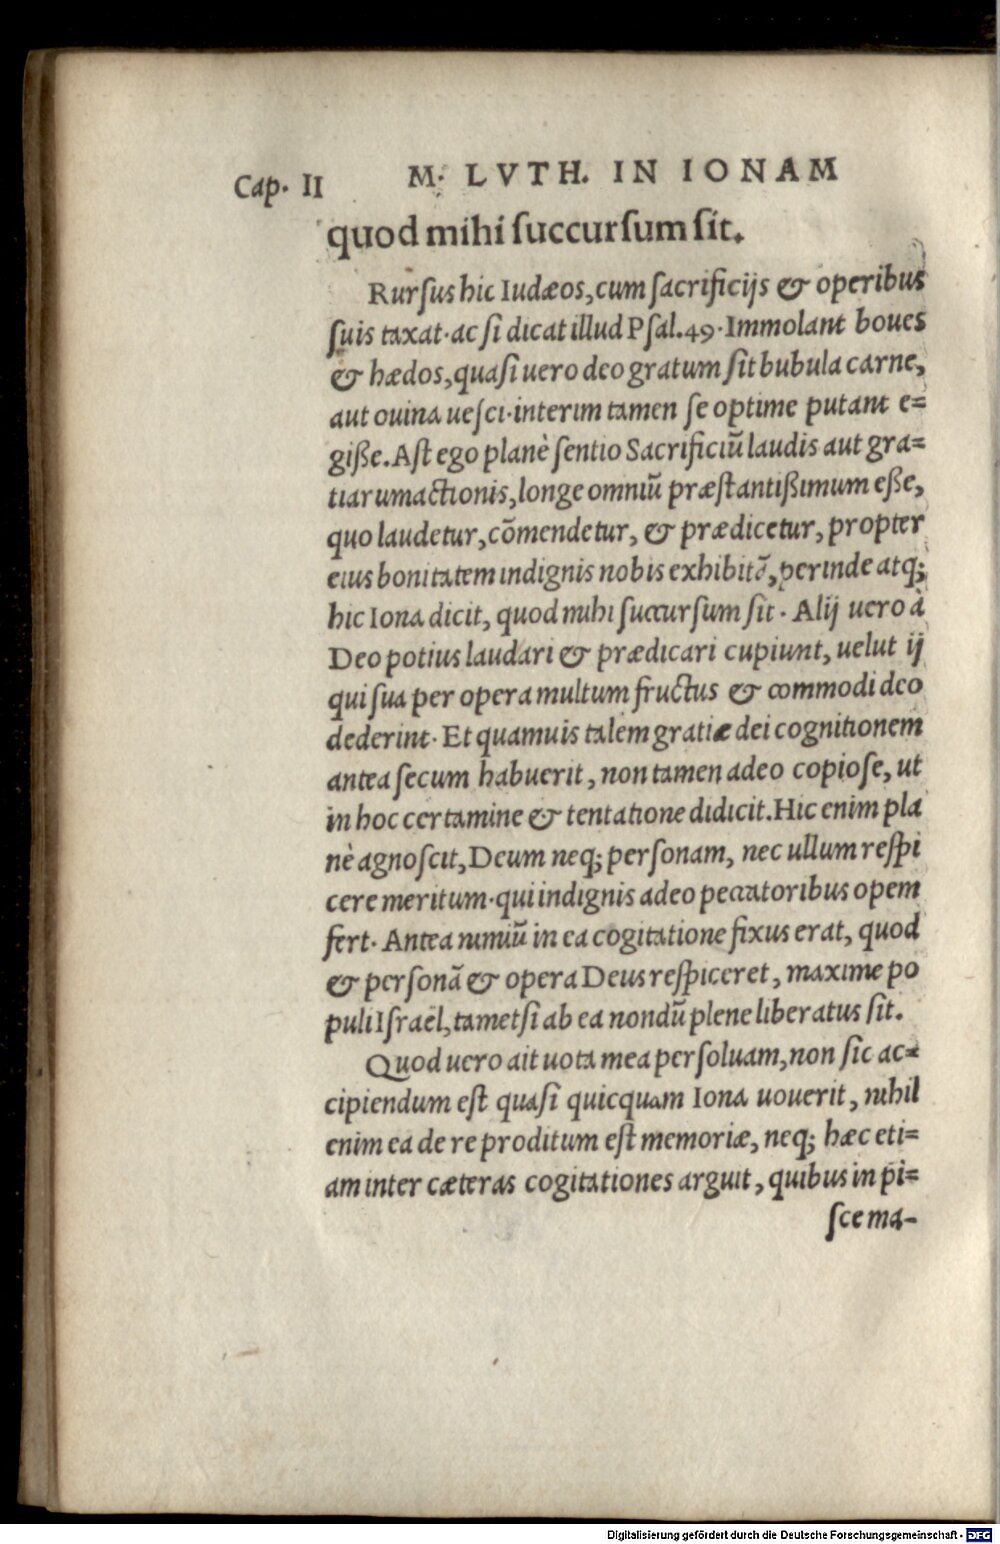 Cap. II M. LVTH. IN IONAM
quod mihi ſuccurſum ſit.
Rurſus hic Iudæos, cum ſacrificijs & operibus
ſuis taxat. ac ſi dicat illud Pſal. 49. Immolant boues
& hædos, quaſi uero deo gratum ſit bubula carne,
aut ouina ueſci. interim tamen ſe optime putant e=
giße. Aſt ego planè ſentio Sacrificiũ laudis aut gra=
tiarum actionis, longe omniũ præſtantißimum eße,
quo laudetur, cõmendetur, & prædicetur, propter
eius bonitatem indignis nobis exhibitã, perinde atq;
hic Iona dicit, quod mihi ſuccurſum ſit. Alij uero à
Deo potius laudari & prædicari cupiunt, uelut ij
qui ſua per opera multum fructus & commodi deo
dederint. Et quamuis talem gratiæ dei cognitionem
antea ſecum habuerit, non tamen adeo copioſe, ut
in hoc certamine & tentatione didicit. Hic enim pla
nè agnoſcit, Deum neq; perſonam, nec ullum reſpi
cere meritum. qui indignis adeo peccatoribus opem
fert. Antea nimiũ in ea cogitatione fixus erat, quod
& perſonã & opera Deus reſpiceret, maxime po
puli Iſraël, tametſi ab ea nondũ plene liberatus ſit.
Quod uero ait uota mea perſoluam, non ſic ac=
cipiendum eſt quaſi quicquam Iona uouerit, nihil
enim ea de re proditum eſt memoriæ, neq; hæc eti=
am inter cæteras cogitationes arguit, quibus in pi=
ſce ma-
Digitalisierung gefördert durch die Deutsche Forschungsgemeinschaft - DFG